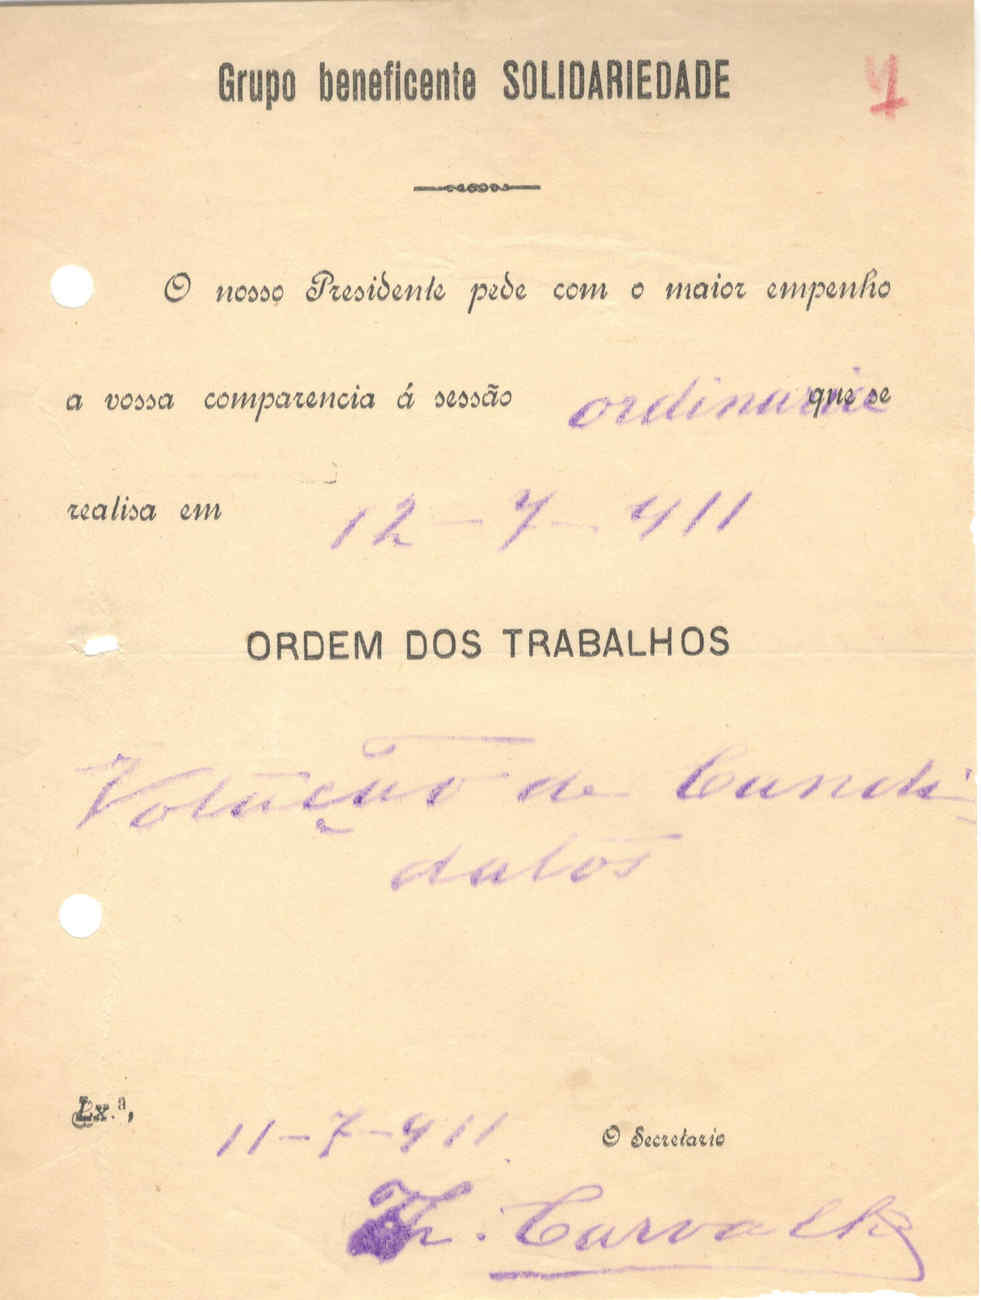 Grupo beneficente SOLIDARIEDADE
O nosso Presidente pede com o maior empenho
a vossa comparencia á sessão ordinaria que se
realisa em 12-7-911
ORDEM DOS TRABALHOS
Votação de Candi-
datos
Lx.ª, 11-7-911 O Secretario
Th. Carvalho